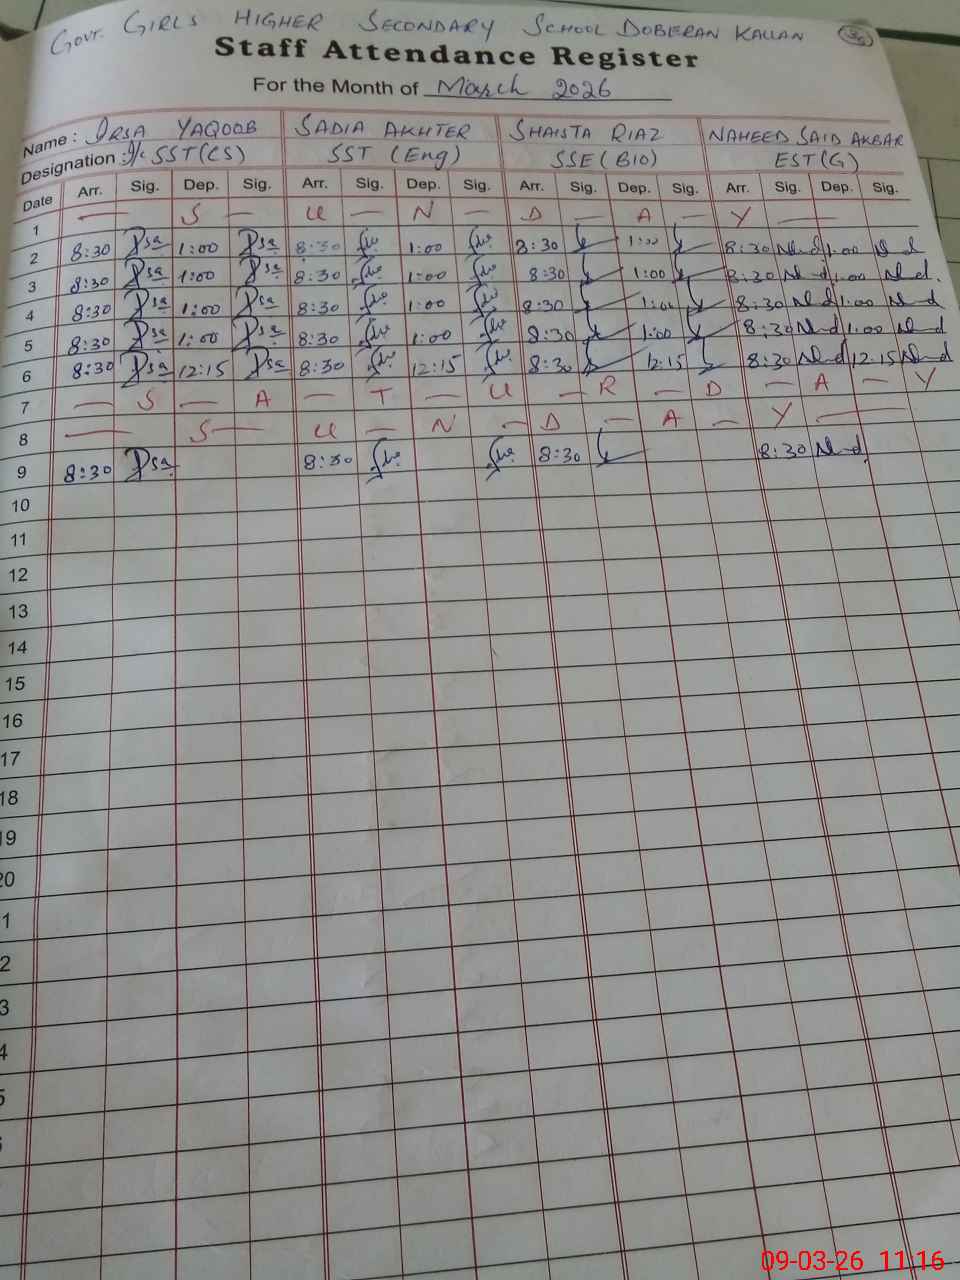 Govt. Girls Higher Secondary School Doberan Kallan
Staff Attendance Register
For the Month of March 2026
Name : Irsa Yaqoob Sadia Akhter Shaista Riaz Naheed Said Akbar
Designation : I/c SST(CS) SST (Eng) SSE (Bio) EST(G)
Date Arr. Sig. Dep. Sig. Arr. Sig. Dep. Sig. Arr. Sig. Dep. Sig. Arr. Sig. Dep. Sig.
1 — S — U — N — D — A — Y —
2 8:30 1:00 8:30 1:00 8:30 1:00 8:30 1:00
3 8:30 1:00 8:30 1:00 8:30 1:00 8:30 1:00
4 8:30 1:00 8:30 1:00 8:30 1:00 8:30 1:00
5 8:30 1:00 8:30 1:00 8:30 1:00 8:30 1:00
6 8:30 12:15 8:30 12:15 8:30 12:15 8:30 12:15
7 — S — A — T — U — R — D — A — Y
8 — S — U — N — D — A — Y —
9 8:30 8:30 8:30 8:30
10
11
12
13
14
15
16
17
18
19
20
1
2
3
4
5
09-03-26 11:16